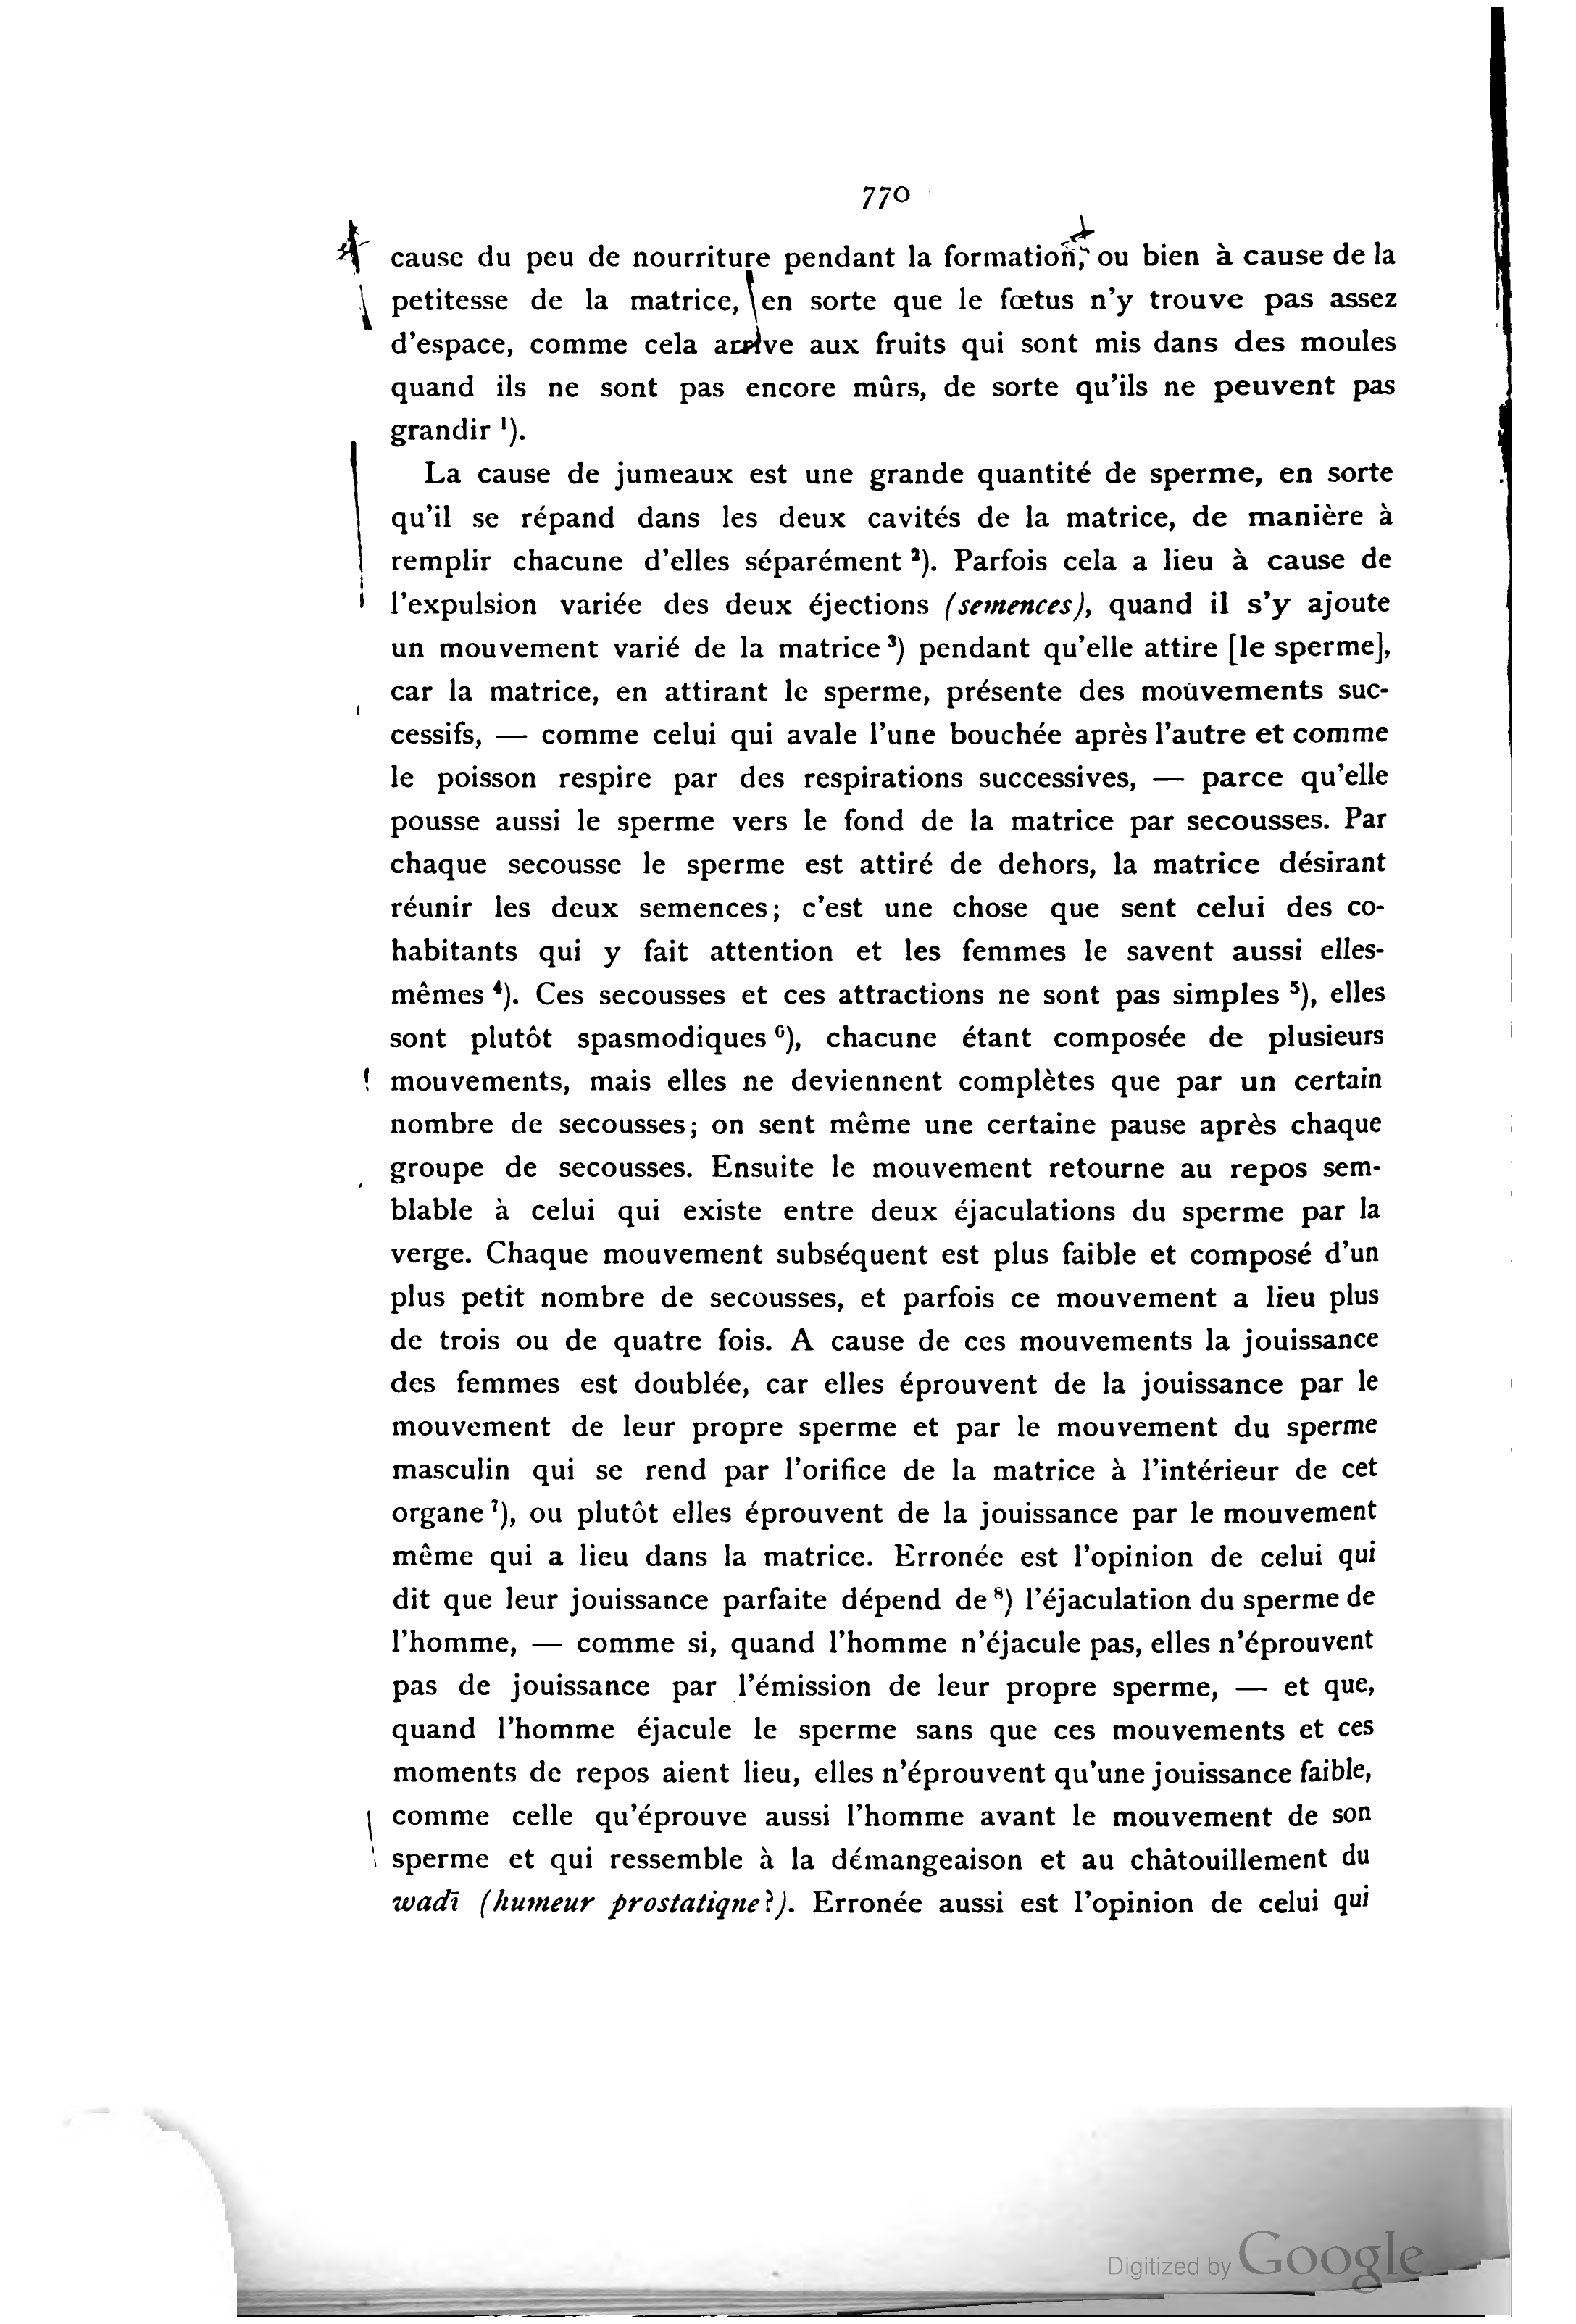 770
cause du peu de nourriture pendant la formation, ou bien à cause de la
petitesse de la matrice, en sorte que le fœtus n'y trouve pas assez
d'espace, comme cela arrive aux fruits qui sont mis dans des moules
quand ils ne sont pas encore mûrs, de sorte qu'ils ne peuvent pas
grandir ¹).
La cause de jumeaux est une grande quantité de sperme, en sorte
qu'il se répand dans les deux cavités de la matrice, de manière à
remplir chacune d'elles séparément ²). Parfois cela a lieu à cause de
l'expulsion variée des deux éjections (semences), quand il s'y ajoute
un mouvement varié de la matrice ³) pendant qu'elle attire [le sperme],
car la matrice, en attirant le sperme, présente des mouvements suc-
cessifs, — comme celui qui avale l'une bouchée après l'autre et comme
le poisson respire par des respirations successives, — parce qu'elle
pousse aussi le sperme vers le fond de la matrice par secousses. Par
chaque secousse le sperme est attiré de dehors, la matrice désirant
réunir les deux semences; c'est une chose que sent celui des co-
habitants qui y fait attention et les femmes le savent aussi elles-
mêmes ⁴). Ces secousses et ces attractions ne sont pas simples ⁵), elles
sont plutôt spasmodiques ⁶), chacune étant composée de plusieurs
mouvements, mais elles ne deviennent complètes que par un certain
nombre de secousses; on sent même une certaine pause après chaque
groupe de secousses. Ensuite le mouvement retourne au repos sem-
blable à celui qui existe entre deux éjaculations du sperme par la
verge. Chaque mouvement subséquent est plus faible et composé d'un
plus petit nombre de secousses, et parfois ce mouvement a lieu plus
de trois ou de quatre fois. A cause de ces mouvements la jouissance
des femmes est doublée, car elles éprouvent de la jouissance par le
mouvement de leur propre sperme et par le mouvement du sperme
masculin qui se rend par l'orifice de la matrice à l'intérieur de cet
organe ⁷), ou plutôt elles éprouvent de la jouissance par le mouvement
même qui a lieu dans la matrice. Erronée est l'opinion de celui qui
dit que leur jouissance parfaite dépend de ⁸) l'éjaculation du sperme de
l'homme, — comme si, quand l'homme n'éjacule pas, elles n'éprouvent
pas de jouissance par l'émission de leur propre sperme, — et que,
quand l'homme éjacule le sperme sans que ces mouvements et ces
moments de repos aient lieu, elles n'éprouvent qu'une jouissance faible,
comme celle qu'éprouve aussi l'homme avant le mouvement de son
sperme et qui ressemble à la démangeaison et au châtouillement du
wadī (humeur prostatique?). Erronée aussi est l'opinion de celui qui
Digitized by Google